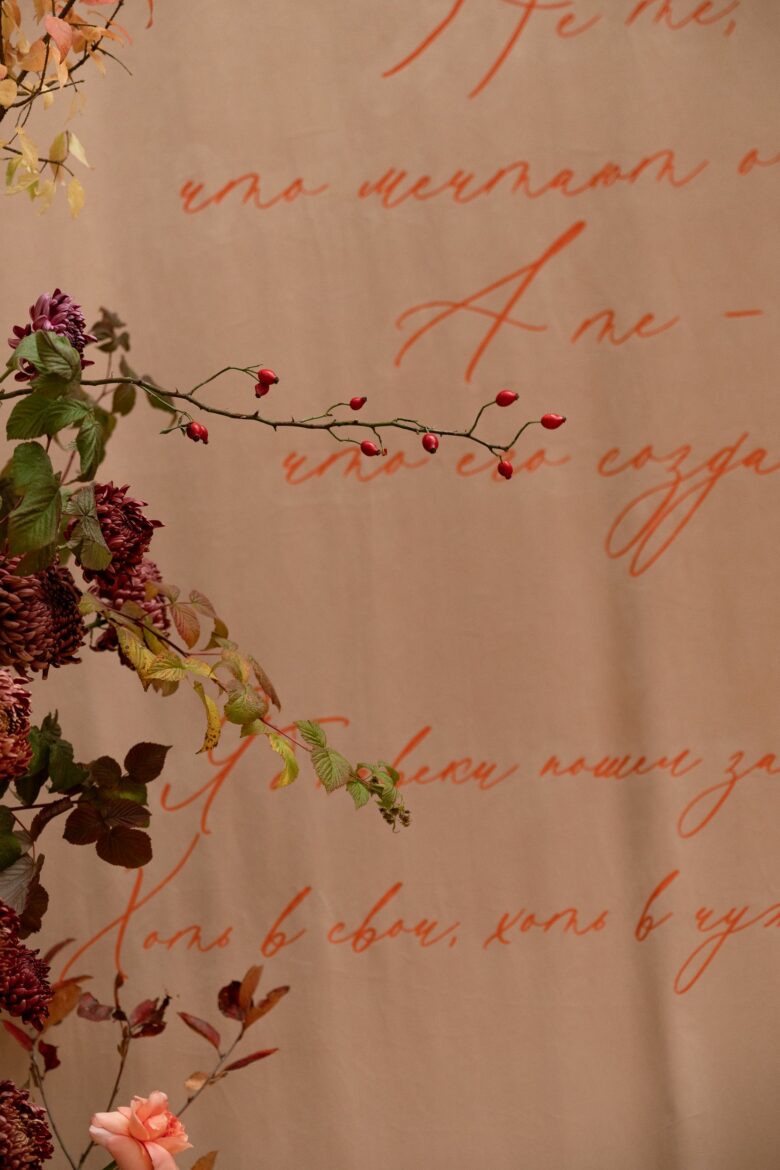 Не те,
что мечтают о
А те –
что его созда
Я б навеки пошел за
Хоть в свои, хоть в чуж